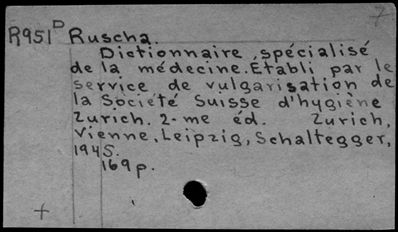 7
R951D Ruscha.
Dictionnaire spécialisé
de la médecine. Établi par le
service de vulgarisation de
la Société Suisse d'hygiène
Zurich. 2-me éd. Zurich,
Vienne, Leipzig, Schaltegger,
1945.
169 p.
+